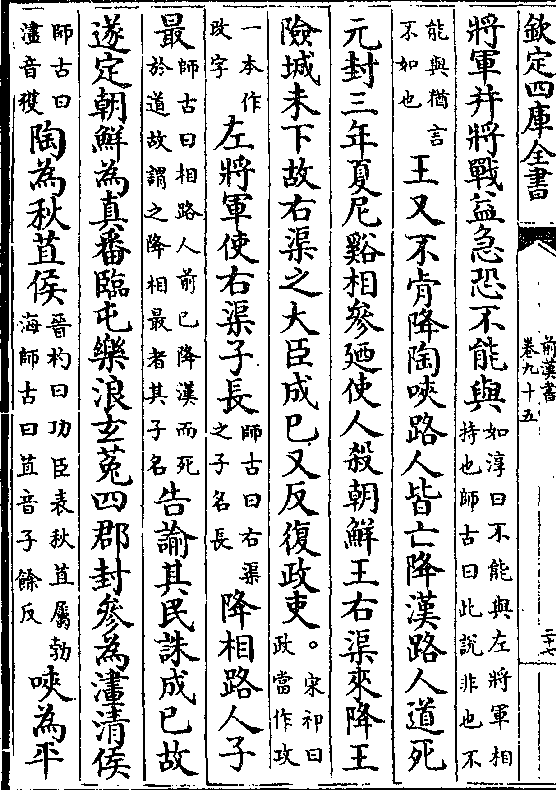 欽定四庫全書
前漢書
卷九十五
二十七
將軍并將戰益急恐不能與如淳曰不能與左將軍相持也師古曰此說非也不
能與猶言不如也王又不肯降陶唊路人皆亡降漢路人道死
元封三年夏尼谿相參迺使人殺朝鮮王右渠來降王
險城未下故右渠之大臣成巳又反復政吏。宋祁曰政當作攻
一本作改字左將軍使右渠子長師古曰右渠之子名長降相路人子
最師古曰相路人前已降漢而死於道故謂之降相最者其子名告諭其民誅成巳故
遂定朝鮮為真番臨屯樂浪玄菟四郡封參為澅清侯
師古曰澅音穫陶為秋苴侯晉灼曰功臣表秋苴屬勃海師古曰苴音子餘反唊為平